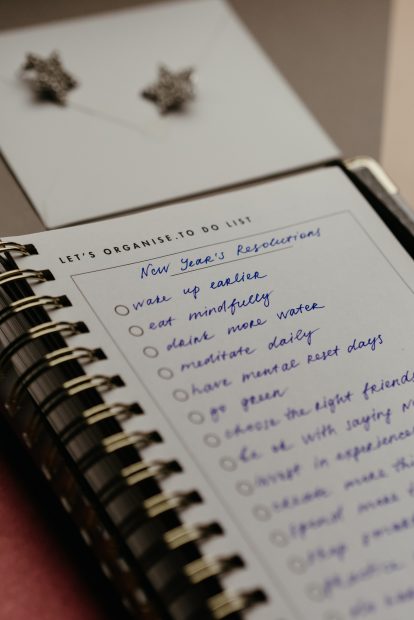 LET'S ORGANISE.TO DO LIST
New Year's Resolutions
wake up earlier
eat mindfully
drink more water
meditate daily
have mental reset days
go green
choose the right friends
be ok with saying
invest in experiences
more
spend more
practice